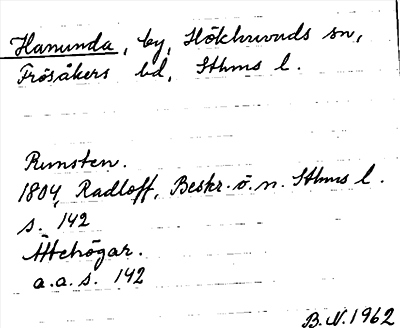 Hanunda, by, Hökhuvuds sn,
Frösåkers hd, Sthms l.
Runsten.
1804, Radloff, Beskr. ö. n. Sthms l.
s. 142
Ättehögar.
a.a. s. 142
B.N. 1962